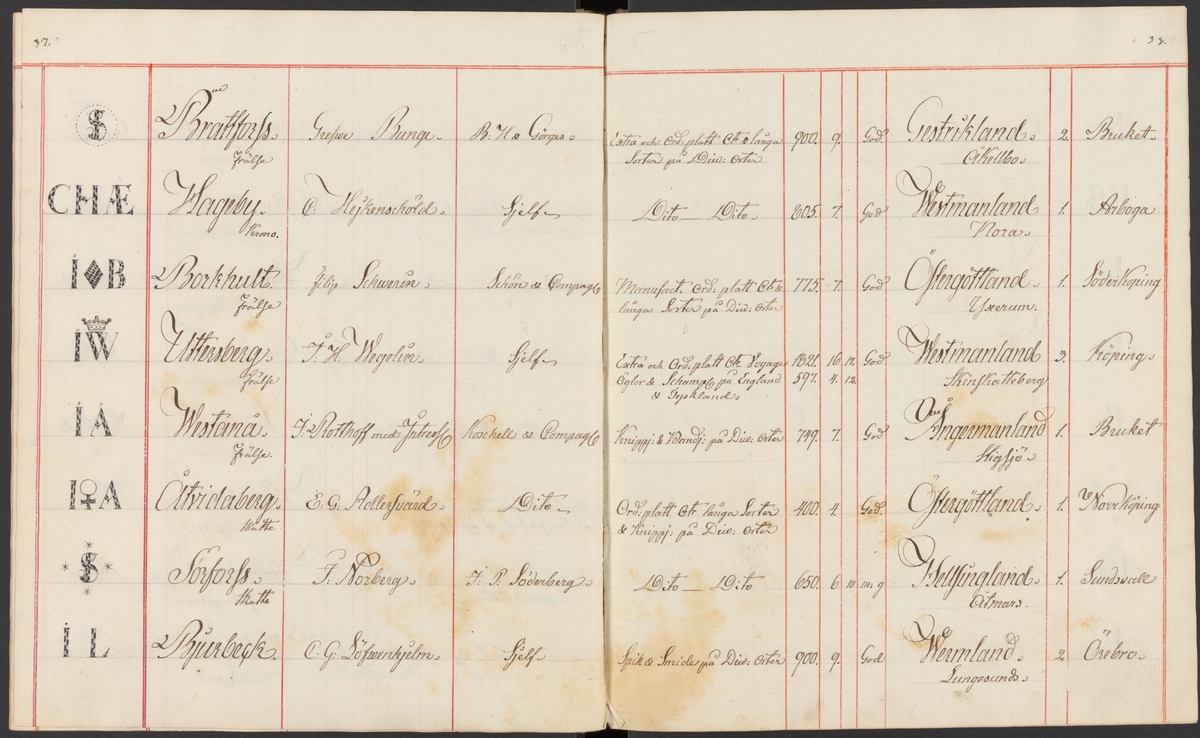 37.
38.
S
Brattforss.
Grefwe Bunge.
B. H. & Görges.
Extra och Ord: platt Etc. & långa
900.
9.
God
Gestrikland.
2.
Bruket.
Frälse
Sorter på Div: Orter
Åkellbo.
CHÆ
Hageby.
C. Hejkenschöld.
Sjelf
Dito — Dito.
805.
7.
God
Westmanland
1.
Arboga
Krono.
Nora.
I B
Borkhult.
Filip Schwerin.
Schön & Compag
Manufact. Ord: platt Etc &
775.
7.
God
Östergöttland.
1.
Söderköping
Frälse
långa Sorter på Div: Orter
Yxerum.
IW
Uttersberg.
J. H. Wegelin.
Sjelf.
Extra och Ord: platt Etc Voyage
1321.
16
17.
God
Westmanland
3.
Köping.
Frälse
Öglor & Schamp på England
597.
4.
12.
Skinskatteberg
& Tyskland.
IA
Westanå.
J. Rothoff med Intress
Koschell & Compag
Knippj: & Bandj: på Div: Orter
749.
7.
God
Ångermanland
1.
Bruket
Frälse.
Stigsjö.
I♀A
Åtvidaberg.
E. G. Adlersvärd.
Dito
Ord: platt Etc långa Sorter
400.
4.
God.
Östergöttland.
1.
Norrköping
Skatte
& Knippj: på Div: Orter
S
Sörforss.
F. Norberg.
J. P. Söderberg.
Dito — Dito
650.
6
10
m: g
Hellsingland.
1.
Sundsvall
Skatte
Attmars.
I L
Bjurbeck.
C. G. Löfwenhjelm.
Sjelf.
Spik & Smide på Div: Orter
900.
9.
God
Wermland.
2
Örebro.
Lungesunds.